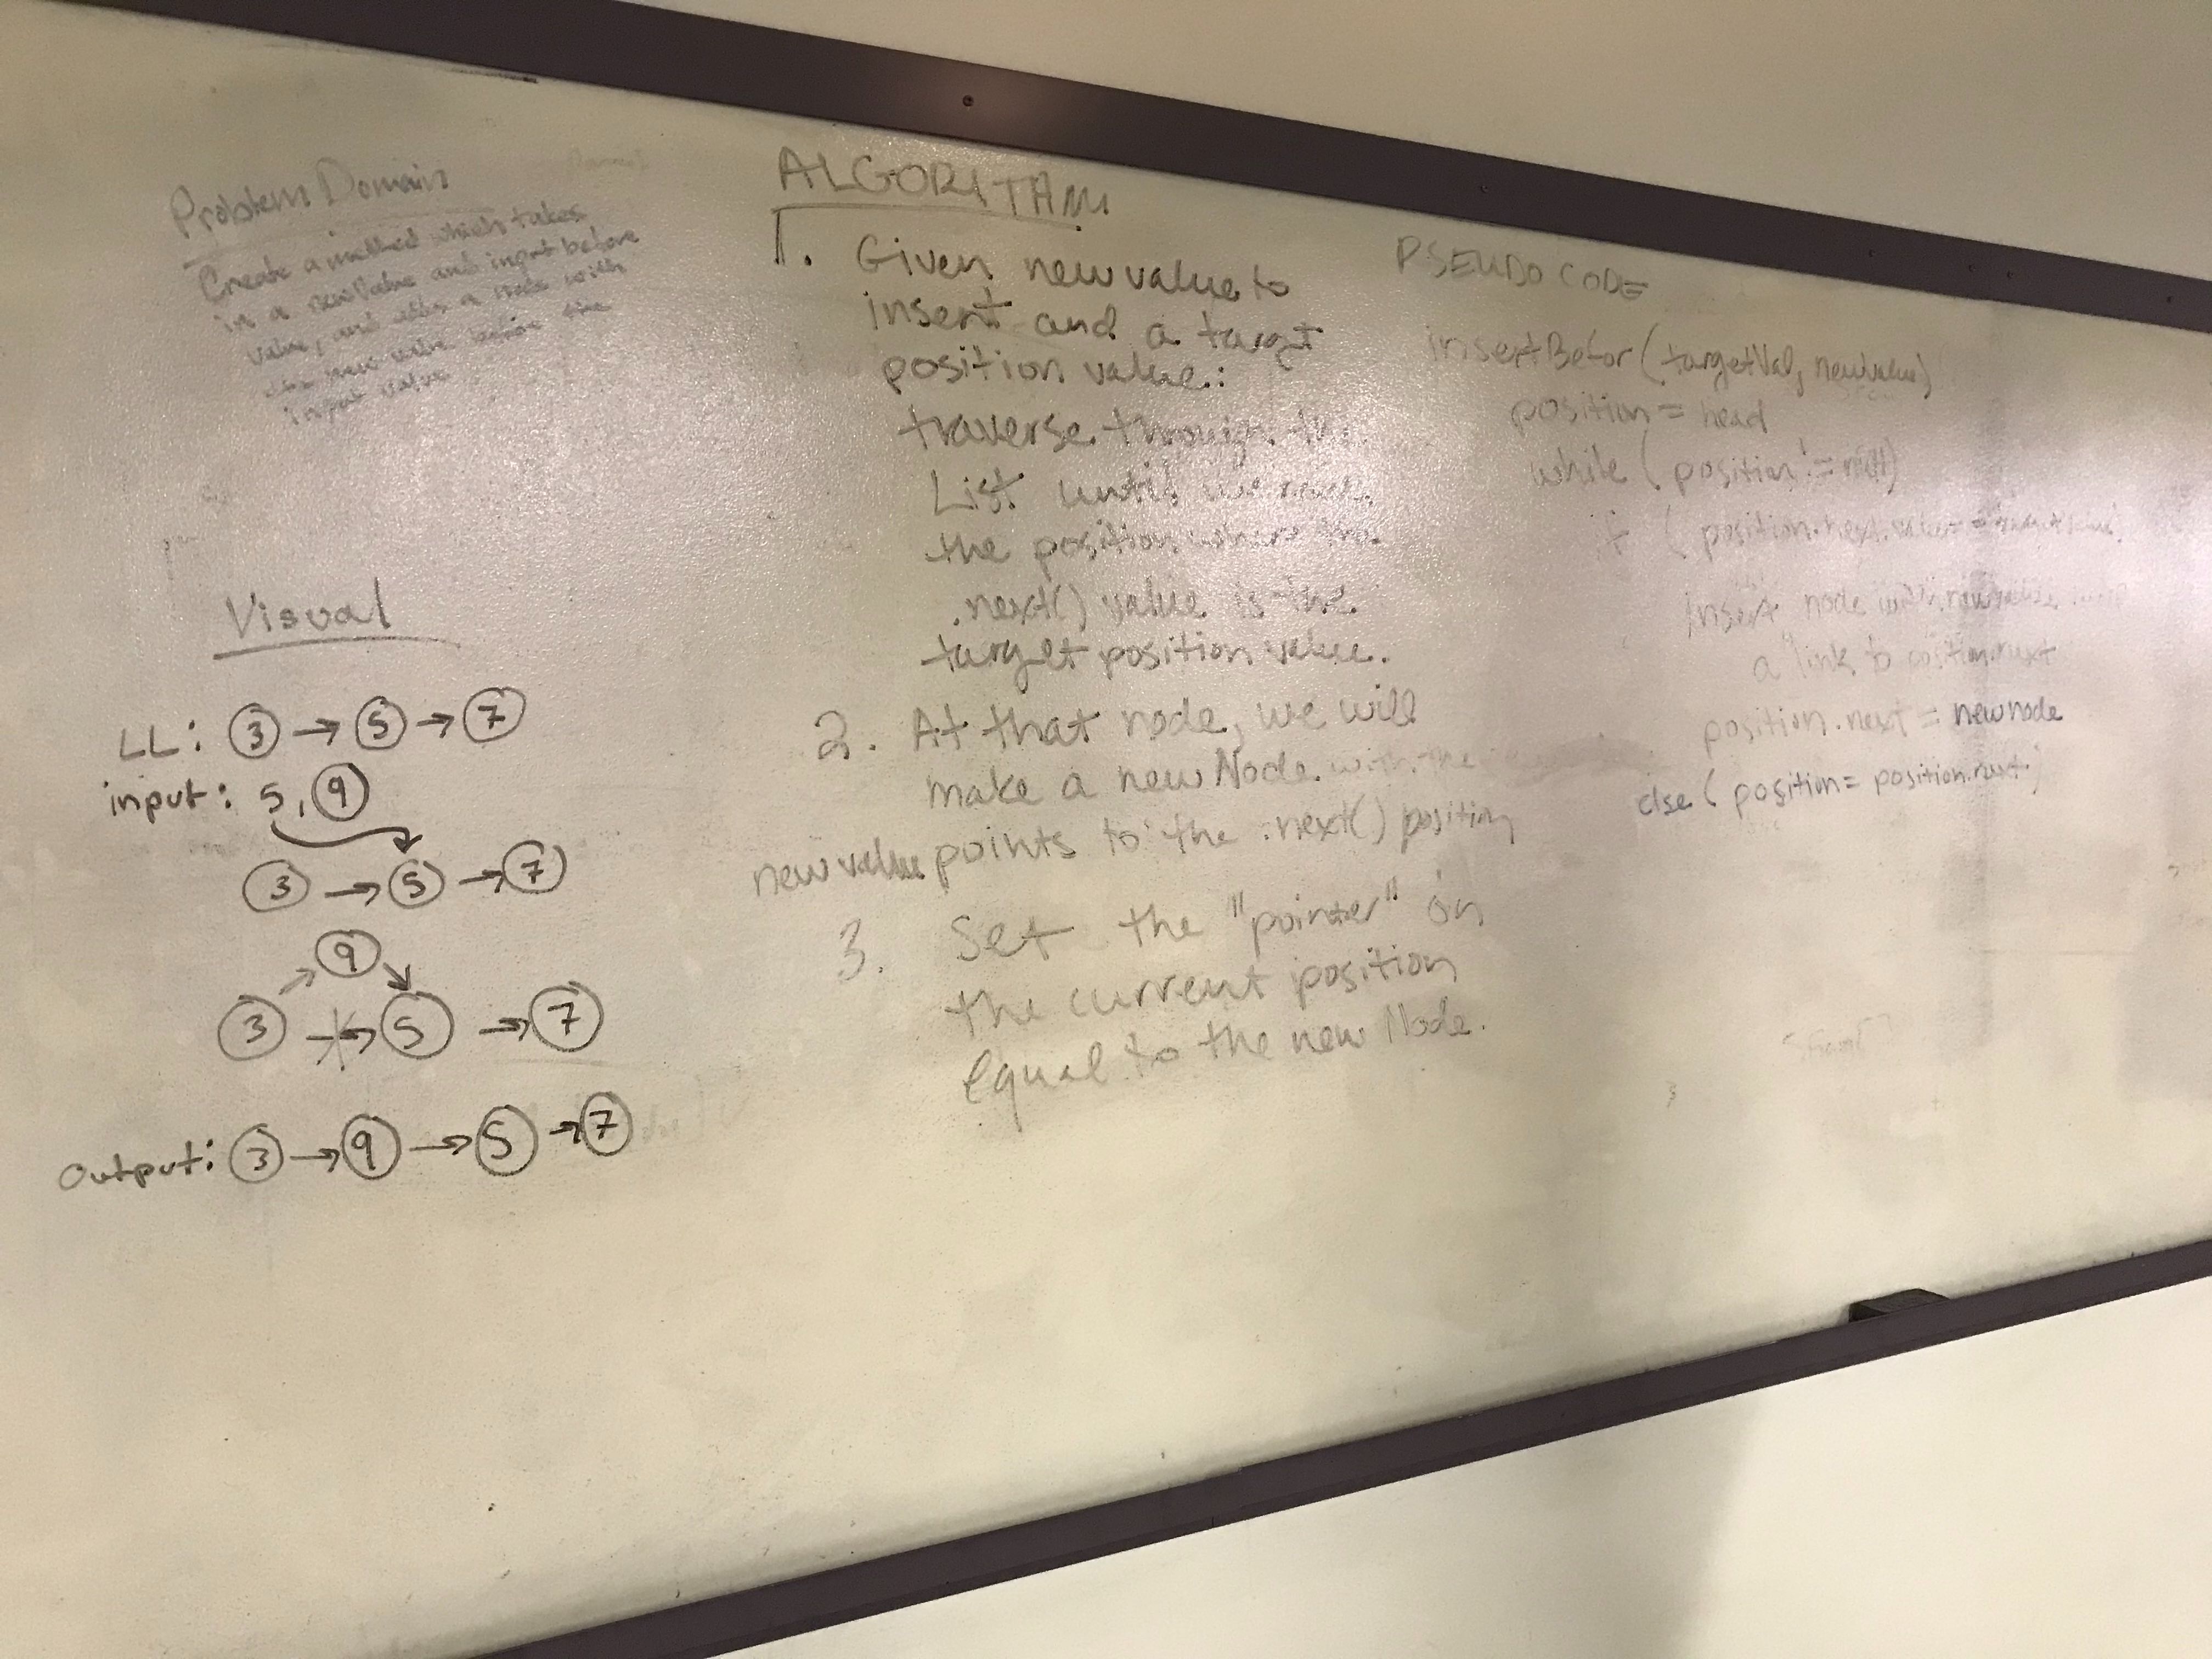 Problem Domain
Create a method which takes
in a newValue and input before
value, and adds a node with
the new value before the
input value
Visual
LL: 3 → 5 → 7
input: 5, 9
3 → 5 → 7
9
3 → 5 → 7
Output: 3 → 9 → 5 → 7
ALGORITHM
1. Given new value to
insert and a target
position value:
traverse through the
List until we reach
the position where the
.next() value is the
target position value.
2. At that node, we will
make a new Node with the
new value points to the .next() position
3. Set the "pointer" on
the current position
equal to the new Node.
PSEUDO CODE
insertBefor (targetVal, newvalue)
position = head
while (position != null)
if (position.next.value =
insert node with newvalue
a link to position.next
position.next = newnode
else (position = position.next)